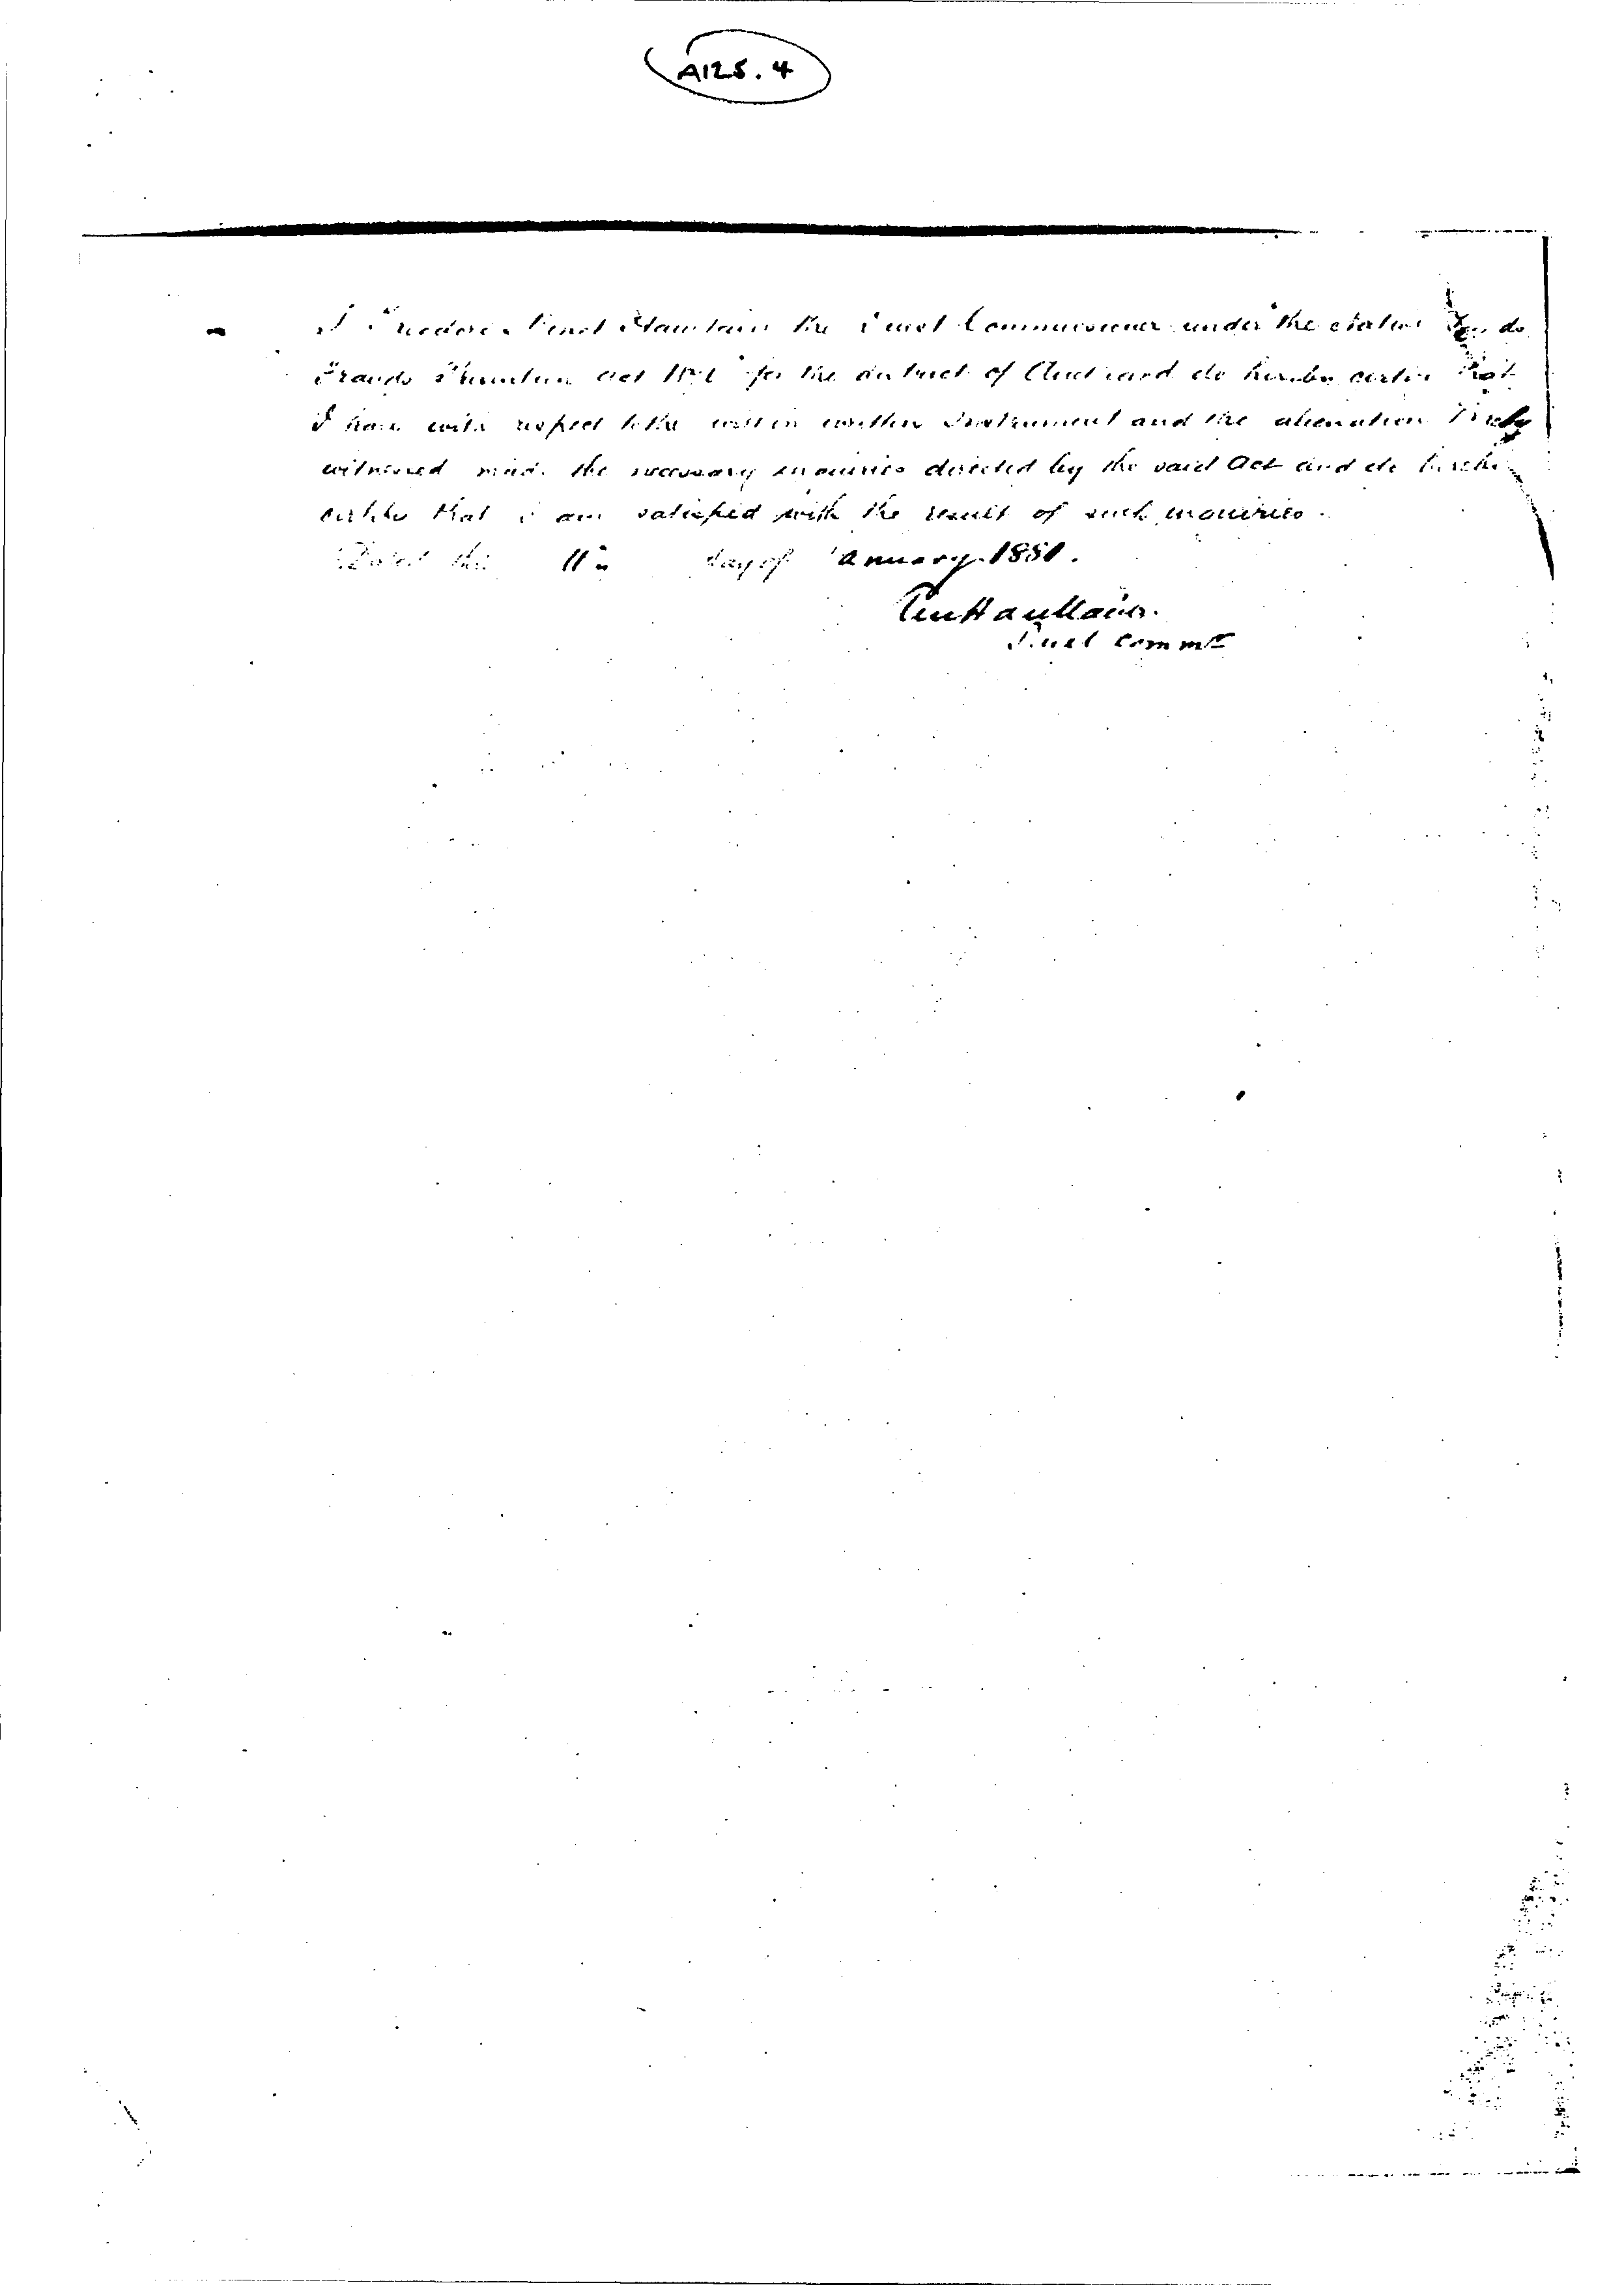 A125.4
I Theodore Minet Haultain the Trust Commissioner under the Native
Frauds Prevention Act for the district of Auckland do hereby certify that
I have with respect to the within written Instrument and the alienation
witnessed made the necessary inquiries directed by the said Act and do
certify that I am satisfied with the result of such inquiries.
Dated this 11th day of January 1881.
Haultain.
Trust Commr